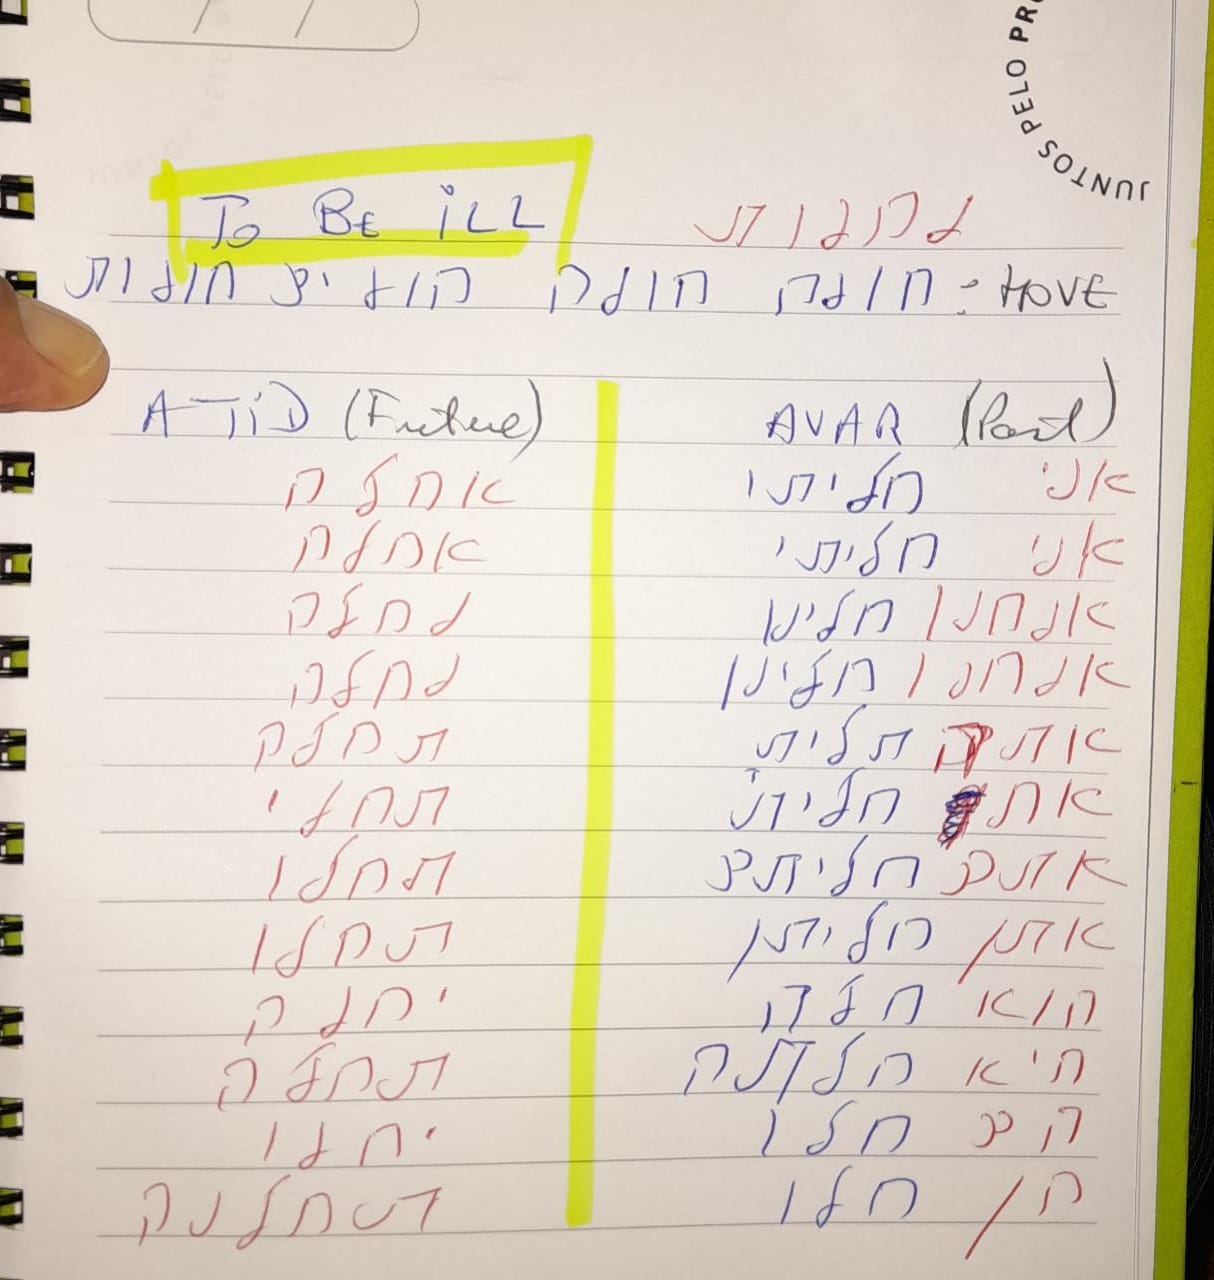 JUNTOS PELO PR
To BE iLL לחלות
HOVE: חולה חולה חולים חולות
ATiD (Future) AVAR (Past)
אני חליתי אחלה
אני חליתי אחלה
אנחנו חלינו נחלה
אנחנו חלינו נחלה
אתה חלית תחלה
את חלית תחלי
אתם חליתם תחלו
אתן חליתן תחלו
הוא חלה יחלה
היא חלתה תחלה
הם חלו יחלו
הן חלו תחלנה